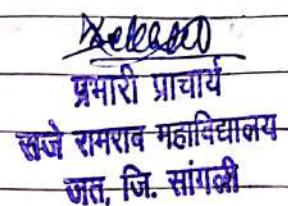 प्रभारी प्राचार्य
राजे रामराव महाविद्यालय
जत, जि. सांगली